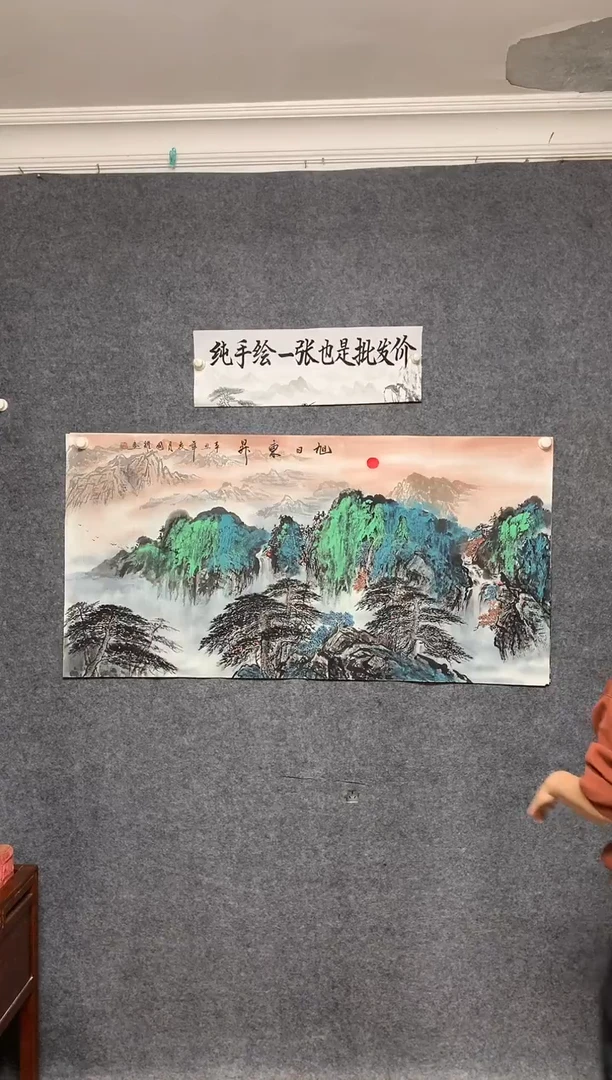 纯手绘一张也是批发价
旭日東昇